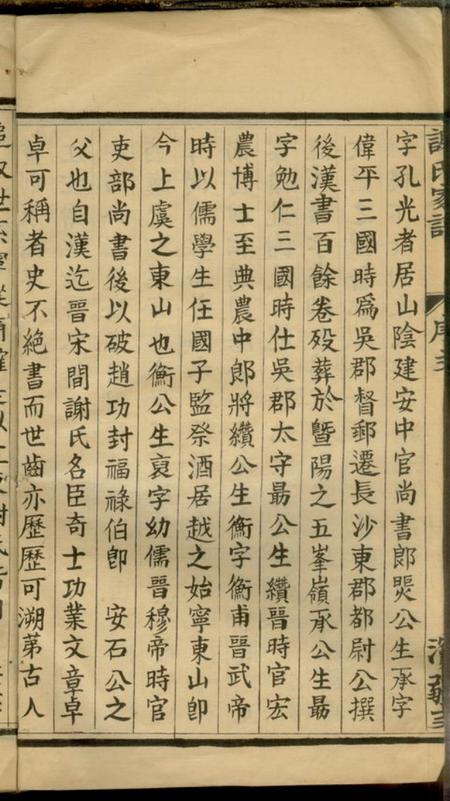 字孔光者居山陰建安中官尚書郎煛公生承字
偉平三國時爲吳郡督郵遷長沙東郡都尉公撰
後漢書百餘卷歿葬於暨陽之五峯嶺承公生最
字勉仁三國時仕吳郡太守最公生纘晉時官宏
農博士至典農中郎將纘公生衡字衡甫晉武帝
時以儒學生任國子監祭酒居越之始寧東山卽
今上虞之東山也衡公生裒字幼儒晉穆帝時官
吏部尚書後以破趙功封福祿伯卽 安石公之
父也自漢迄晉宋間謝氏名臣奇士功業文章卓
卓可稱者史不絕書而世齒亦歷歷可溯苐古人